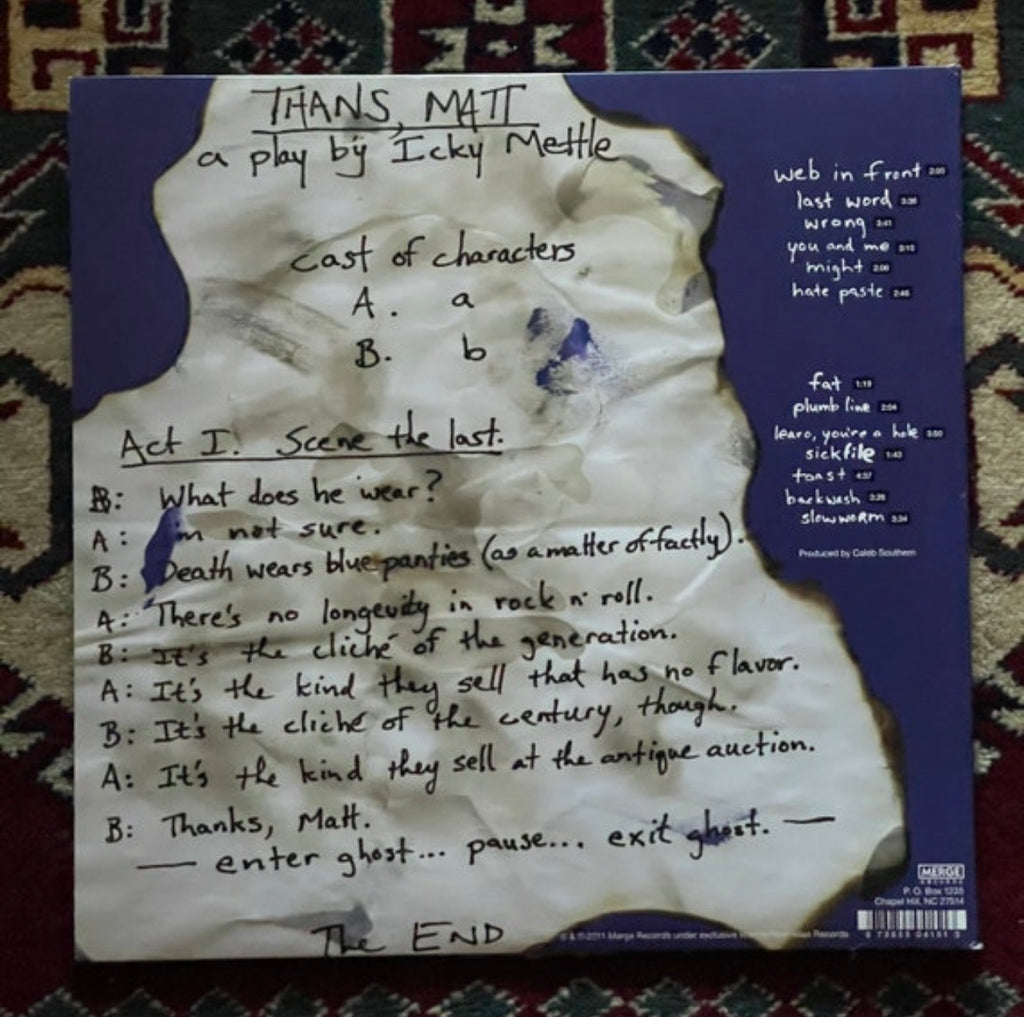 THANS, MATT
a play by Icky Mettle
cast of characters
A. a
B. b
Act I. Scene the last.
B: What does he wear?
A: I'm not sure.
B: Death wears blue panties (as a matter of factly).
A: There's no longevity in rock n' roll.
B: It's the cliché of the generation.
A: It's the kind they sell that has no flavor.
B: It's the cliché of the century, though.
A: It's the kind they sell at the antique auction.
B: Thanks, Matt.
— enter ghost... pause... exit ghost. —
The END
web in front 2:00
last word
wrong
you and me
might
hate paste
fat 1:19
plumb line 2:04
learo, you're a hole
sickfile 1:43
toast 4:37
backwash
slow worm 3:34
Produced by Caleb Southern
MERGE
RECORDS
P. O. Box 1235
Chapel Hill, NC 27514
© & ℗ 2011 Merge Records under exclusive Records